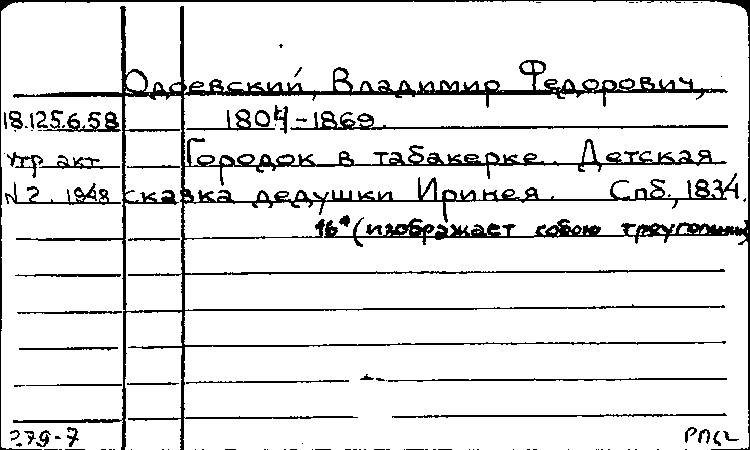 Одоевский, Владимир Федорович,
18.125.6.58 1804-1869.
Утр акт Городок в табакерке. Детская
N 2. 1948 сказка дедушки Иринея. Спб., 1834.
16° (изображает собою треугольник)
279-7